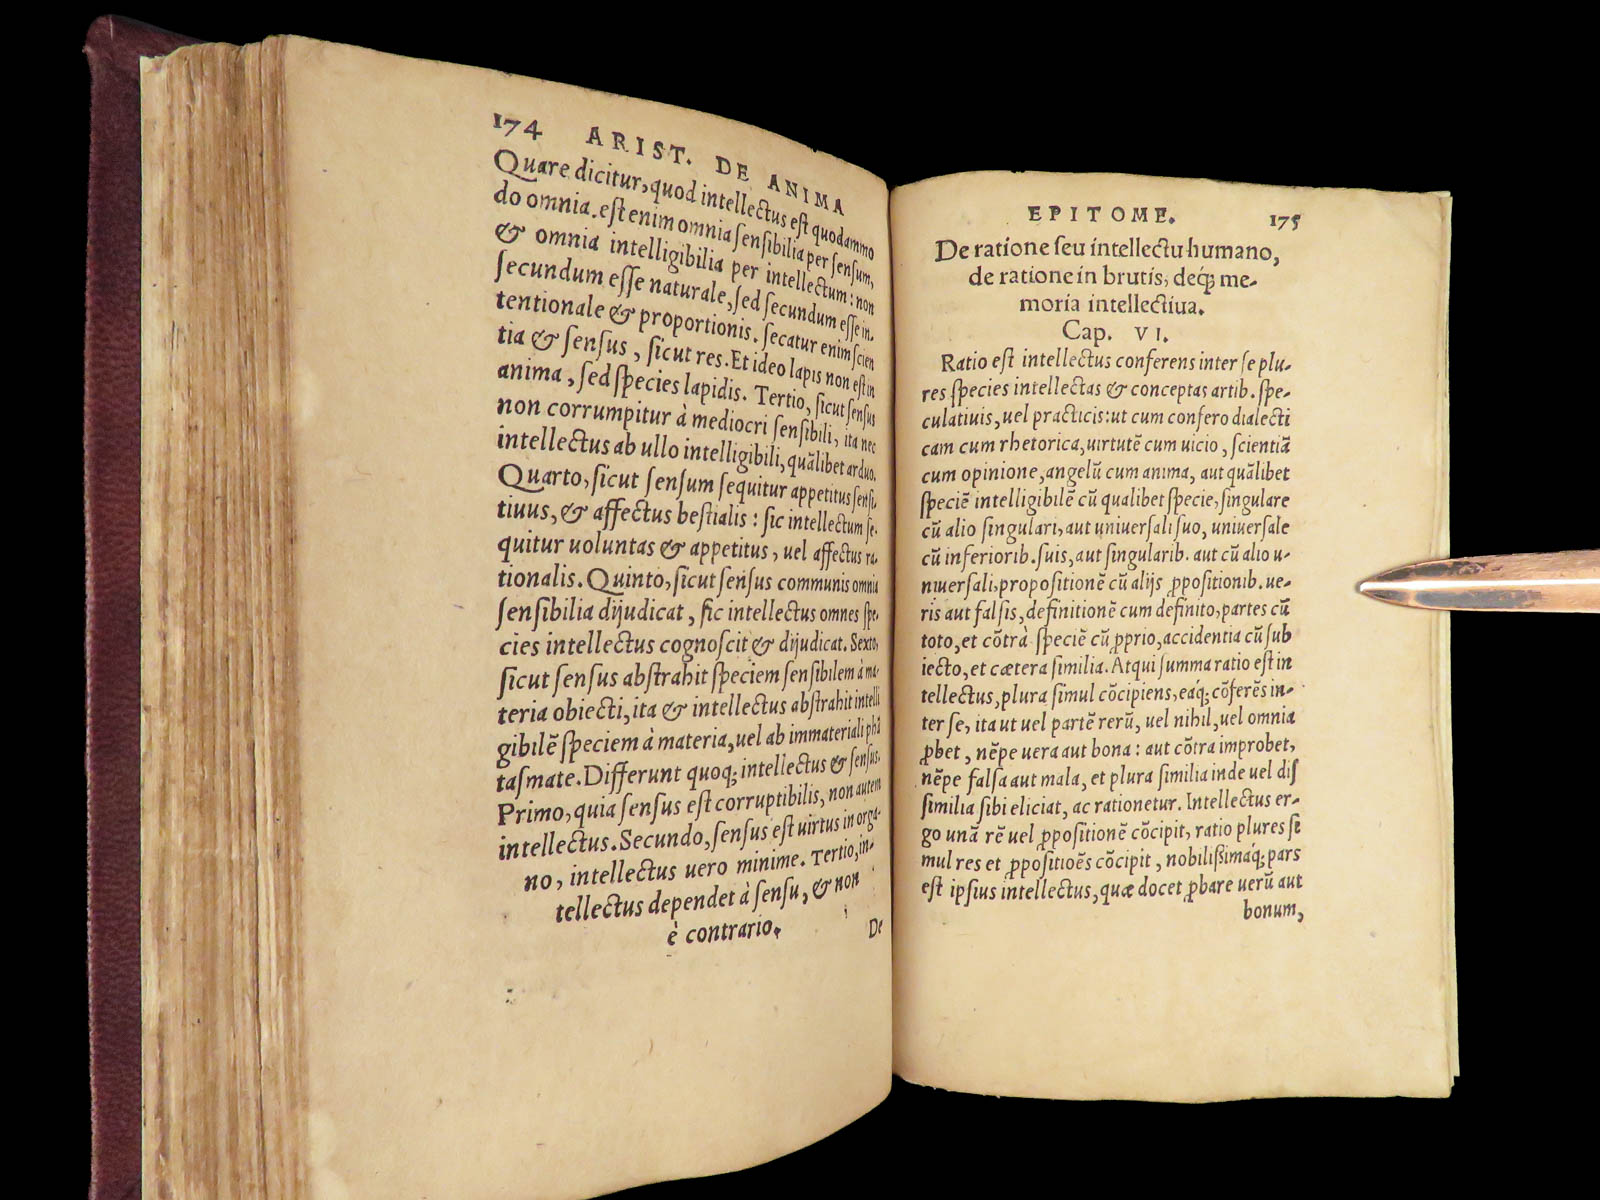 174 ARIST. DE ANIMA
Quare dicitur, quod intellectus est quodammo
do omnia. est enim omnia sensibilia per sensum,
& omnia intelligibilia per intellectum: non
secundum esse naturale, sed secundum esse in-
tentionale & proportionis. secatur enim scien
tia & sensus, sicut res. Et ideo lapis non est in
anima, sed species lapidis. Tertio, sicut sensus
non corrumpitur à mediocri sensibili, ita nec
intellectus ab ullo intelligibili, quãlibet arduo.
Quarto, sicut sensum sequitur appetitus sensi
tiuus, & affectus bestialis: sic intellectum se-
quitur uoluntas & appetitus, uel affectus ra-
tionalis. Quinto, sicut sensus communis omnia
sensibilia dijudicat, sic intellectus omnes spe-
cies intellectus cognoscit & dijudicat. Sexto,
sicut sensus abstrahit speciem sensibilem à ma-
teria obiecti, ita & intellectus abstrahit intelli
gibilẽ speciem à materia, uel ab immateriali phã
tasmate. Differunt quoq; intellectus & sensus.
Primo, quia sensus est corruptibilis, non autem
intellectus. Secundo, sensus est uirtus in orga-
no, intellectus uero minime. Tertio, in-
tellectus dependet à sensu, & non
è contrario.
De
EPITOME. 175
De ratione seu intellectu humano,
de ratione in brutis, deq́; me-
moria intellectiua.
Cap. VI.
Ratio est intellectus conferens inter se plu-
res species intellectas & conceptas artib. spe-
culatiuis, uel practicis: ut cum confero dialecti
cam cum rhetorica, uirtutẽ cum uicio, scientiã
cum opinione, angelũ cum anima, aut quãlibet
speciẽ intelligibilẽ cũ qualibet specie, singulare
cũ alio singulari, aut uniuersali suo, uniuersale
cũ inferiorib. suis, aut singularib. aut cũ alio u-
niuersali, propositionẽ cũ alijs ꝓpositionib. ue-
ris aut falsis, definitionẽ cum definito, partes cũ
toto, et cõtrà speciẽ cũ ꝓprio, accidentia cũ sub
iecto, et cætera similia. Atqui summa ratio est in
tellectus, plura simul cõcipiens, eaq́; cõferẽs in-
ter se, ita ut uel partẽ rerũ, uel nihil, uel omnia
ꝓbet, nẽpe uera aut bona: aut cõtra improbet,
nẽpe falsa aut mala, et plura similia inde uel dis
similia sibi eliciat, ac rationetur. Intellectus er-
go unã rẽ uel ꝓpositionẽ cõcipit, ratio plures si
mul res et ꝓpositiões cõcipit, nobilissimaq́; pars
est ipsius intellectus, quæ docet ꝓbare uerũ aut
bonum,